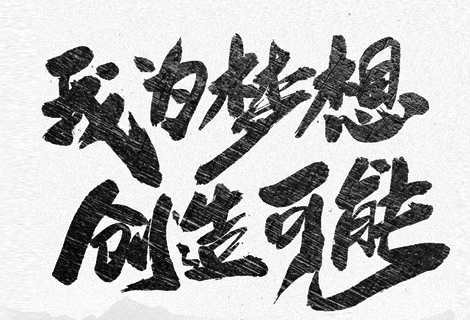 我为梦想
创造可能